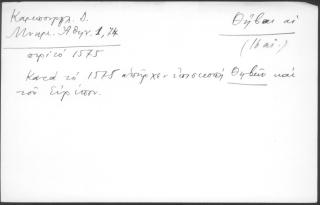 Καμπούρογλ. Δ.
Μνημ. Ἀθην. 1, 74
Θῆβαι αἱ
(16 αἰ.)
πρὸ τὸ 1575
Κατὰ τὸ 1575 ὑπῆρχεν ἐπισκοπὴ Θηβῶν καὶ
τοῦ Εὐρίπου.